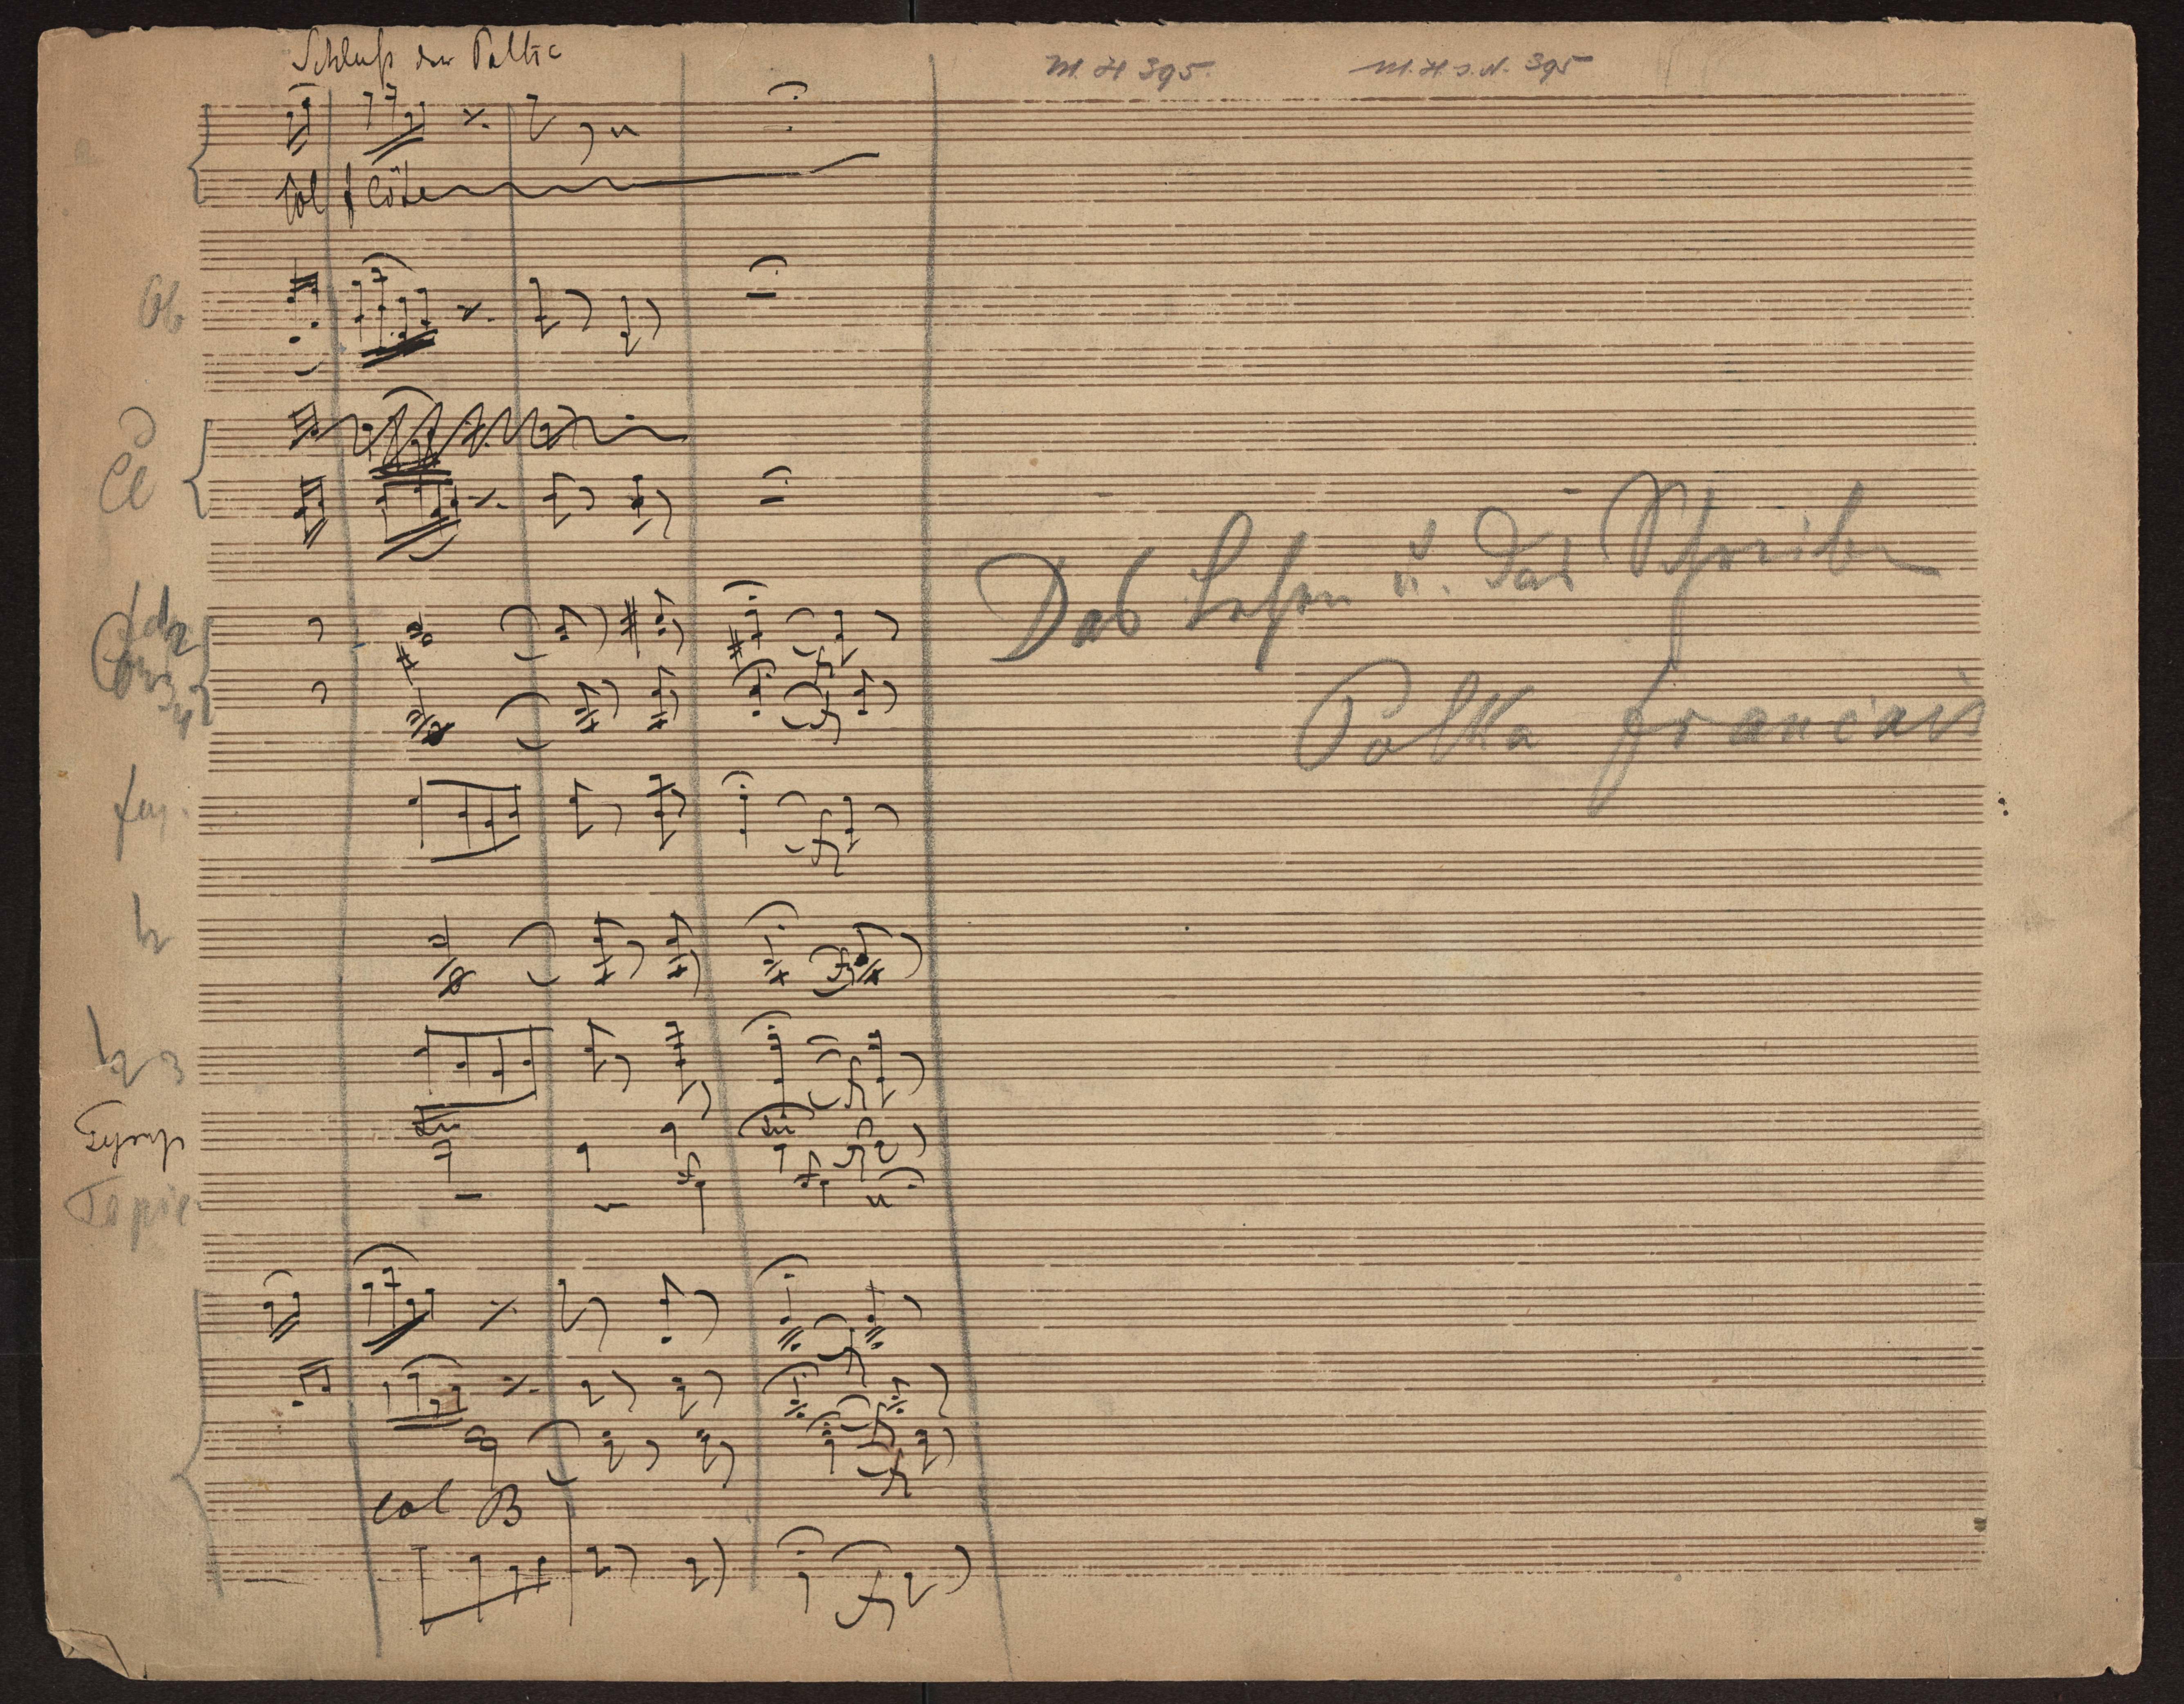 Schluß der Polka
M. H 395.
M. H. I. N. 395
Col Flöte
Ob
Cl
1 2
3 4
fag.
tr
tr 2 3
tr
tr
Col B
Das Lesen u. das Schreiben
Polka français